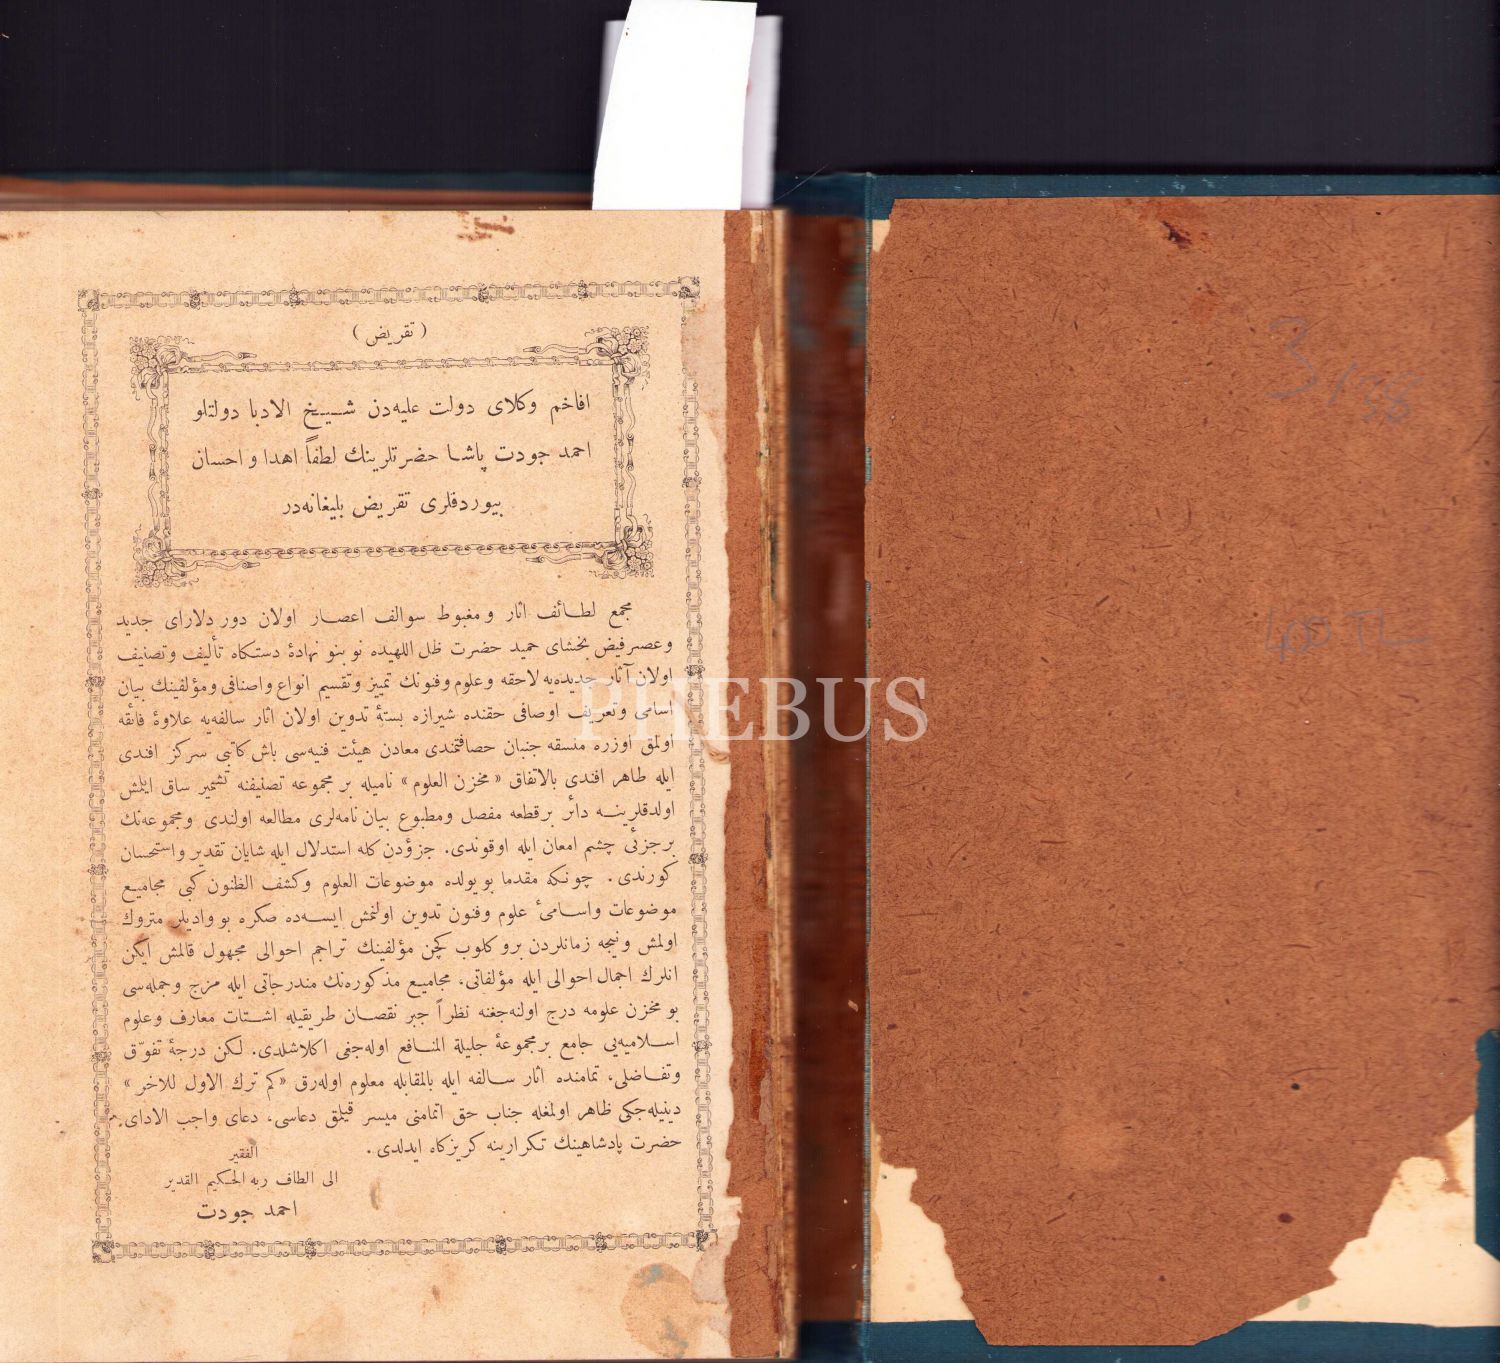 ( تقریض )
افاخم وکلای دولت علیه‌دن شیخ الادبا دولتلو
احمد جودت پاشا حضرتلرینك لطفاً اهدا و احسان
بیوردقلری تقریض بلیغانه‌در
مجمع لطائف اثار و مغبوط سوالف اعصار اولان دور دلارای جدید
و عصر فیض بخشای حمید حضرت ظل اللهیده نو بنو نهادهٔ دستکاه تألیف و تصنیف
اولان آثار جدیده‌یه لاحقه و علوم و فنونك تمییز و تقسیم انواع و اصنافی و مؤلفینك بیان
اسامی و تعریف اوصافی حقنده شیرازه بستهٔ تدوین اولان اثار سالفه‌یه علاوهٔ فائقه
اولمق اوزره منسقه جنبان حصافتمندی معادن هیئت فنیه‌سی باش کاتبی سرکز افندی
ایله طاهر افندی بالاتفاق « مخزن العلوم » نامیله بر مجموعه تصنیفنه تشمیر ساق ایلمش
اولدقلرینه دائر بر قطعه مفصل و مطبوع بیان نامه‌لری مطالعه اولندی و مجموعه‌نك
بر جزئی چشم امعان ایله اوقوندی. جزؤدن کله استدلال ایله شایان تقدیر و استحسان
کورندی. چونکه مقدما بو یولده موضوعات العلوم و کشف الظنون کبی مجامیع
موضوعات و اسامیٔ علوم و فنون تدوین اولنمش ایسه‌ده صکره بو وادیلر متروك
اولمش و نیجه زمانلردن برو کلوب کچن مؤلفینك تراجم احوالی مجهول قالمش ایکن
انلرك اجمال احوالی ایله مؤلفاتی، مجامیع مذکوره‌نك مندرجاتی ایله مزج و جمله‌سی
بو مخزن علومه درج اولنه‌جغنه نظراً جبر نقصان طریقیله اشتات معارف و علوم
اسلامیه‌یی جامع بر مجموعهٔ جلیلة المنافع اوله‌جغی اکلاشلدی. لکن درجهٔ تفوّق
و تفاضلی، تمامنده اثار سالفه ایله بالمقابله معلوم اوله‌رق « کم ترك الاول للاخر »
دینیله‌جکی ظاهر اولمغله جناب حق اتمامنی میسر قیلمق دعاسی، دعای واجب الادای
حضرت پادشاهینك تکرارینه کریزکاه ایدلدی.
الفقیر
الی الطاف ربه الحکیم القدیر
احمد جودت
3/58
400 TL
PHEBUS